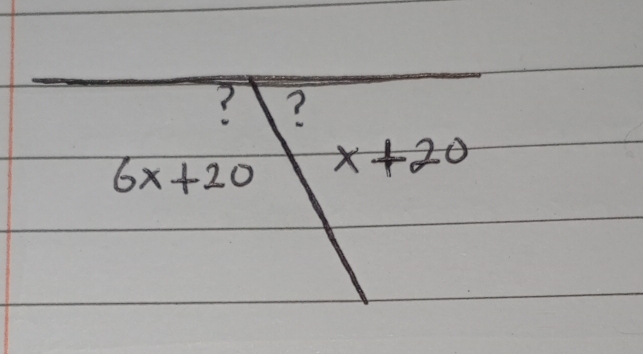 ? ?
6x+20 x+20